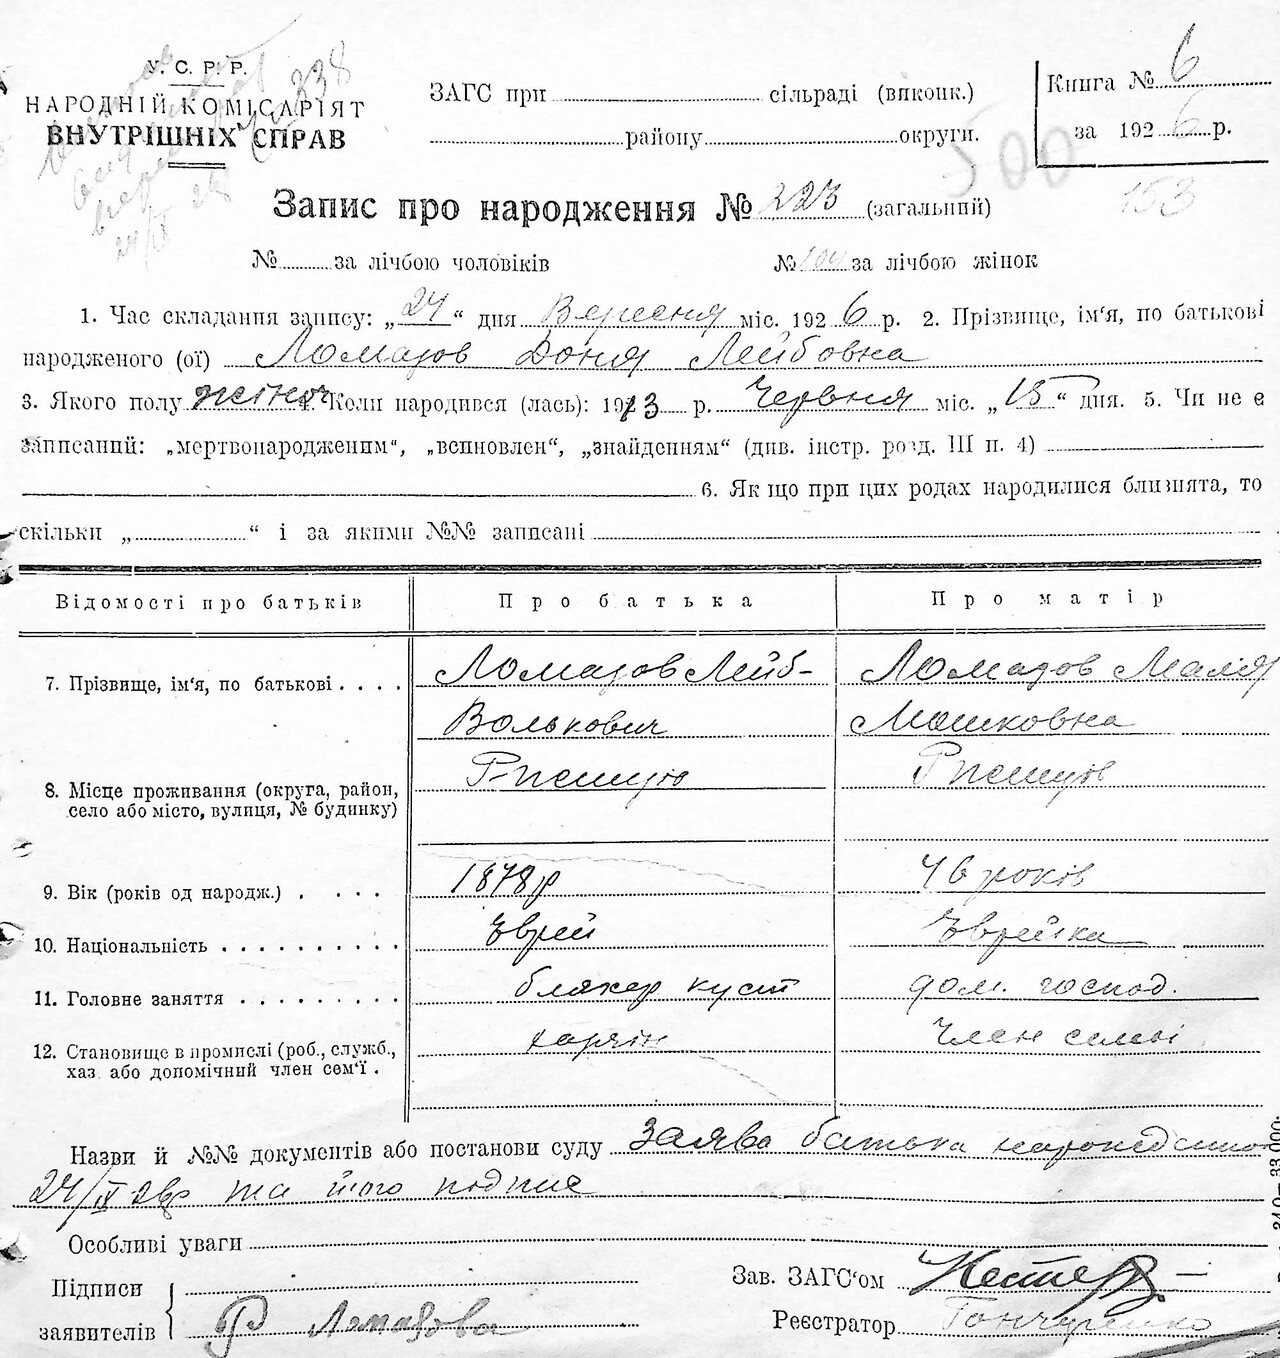 У. С. Р. Р.
НАРОДНІЙ КОМІСАРІЯТ
ВНУТРІШНІХ СПРАВ
338
ЗАГС при сільраді (виконк.)
району округи.
Книга № 6
за 1926 р.
500
153
Запис про народження № 223 (загальний)
№ за лічбою чоловіків
№ 104 за лічбою жінок
1. Час складання запису: „24“ дня Вересня міс. 1926 р. 2. Прізвище, ім‘я, по батькові
народженого (ої) Ломазов Доня Лейбовна
3. Якого полу жіноч 4. Коли народився (лась): 1913 р. Червня міс. „15“ дня. 5. Чи не є
записаний: „мертвонародженим“, „вспновлен“, „знайденням“ (див. інстр. розд. III п. 4)
6. Якщо при цих родах народилися близнята, то
скільки „ “ і за якими №№ записані
Відомості про батьків Про батька Про матір
7. Прізвище, ім‘я, по батькові . . . . Ломазов Лейб- Ломазов Маля
Волькович Мошковна
8. Місце проживання (округа, район,
село або місто, вулиця, № будинку)
9. Вік (років од народж.) . . . . . 1878 р 46 років
10. Національність . . . . . . . . . . Єврей Єврейка
11. Головне заняття . . . . . . . . . бляхер куст дом. господ.
12. Становище в промислі (роб., служб., Член семі
хаз. або допомічний член сем‘ї .
Назви й №№ документів або постанови суду Заява батька
24/IX 26р та його подпис
Особливі уваги
Підписи
заявителів Ломазова
Зав. ЗАГС‘ом
Реєстратор Гончаренко